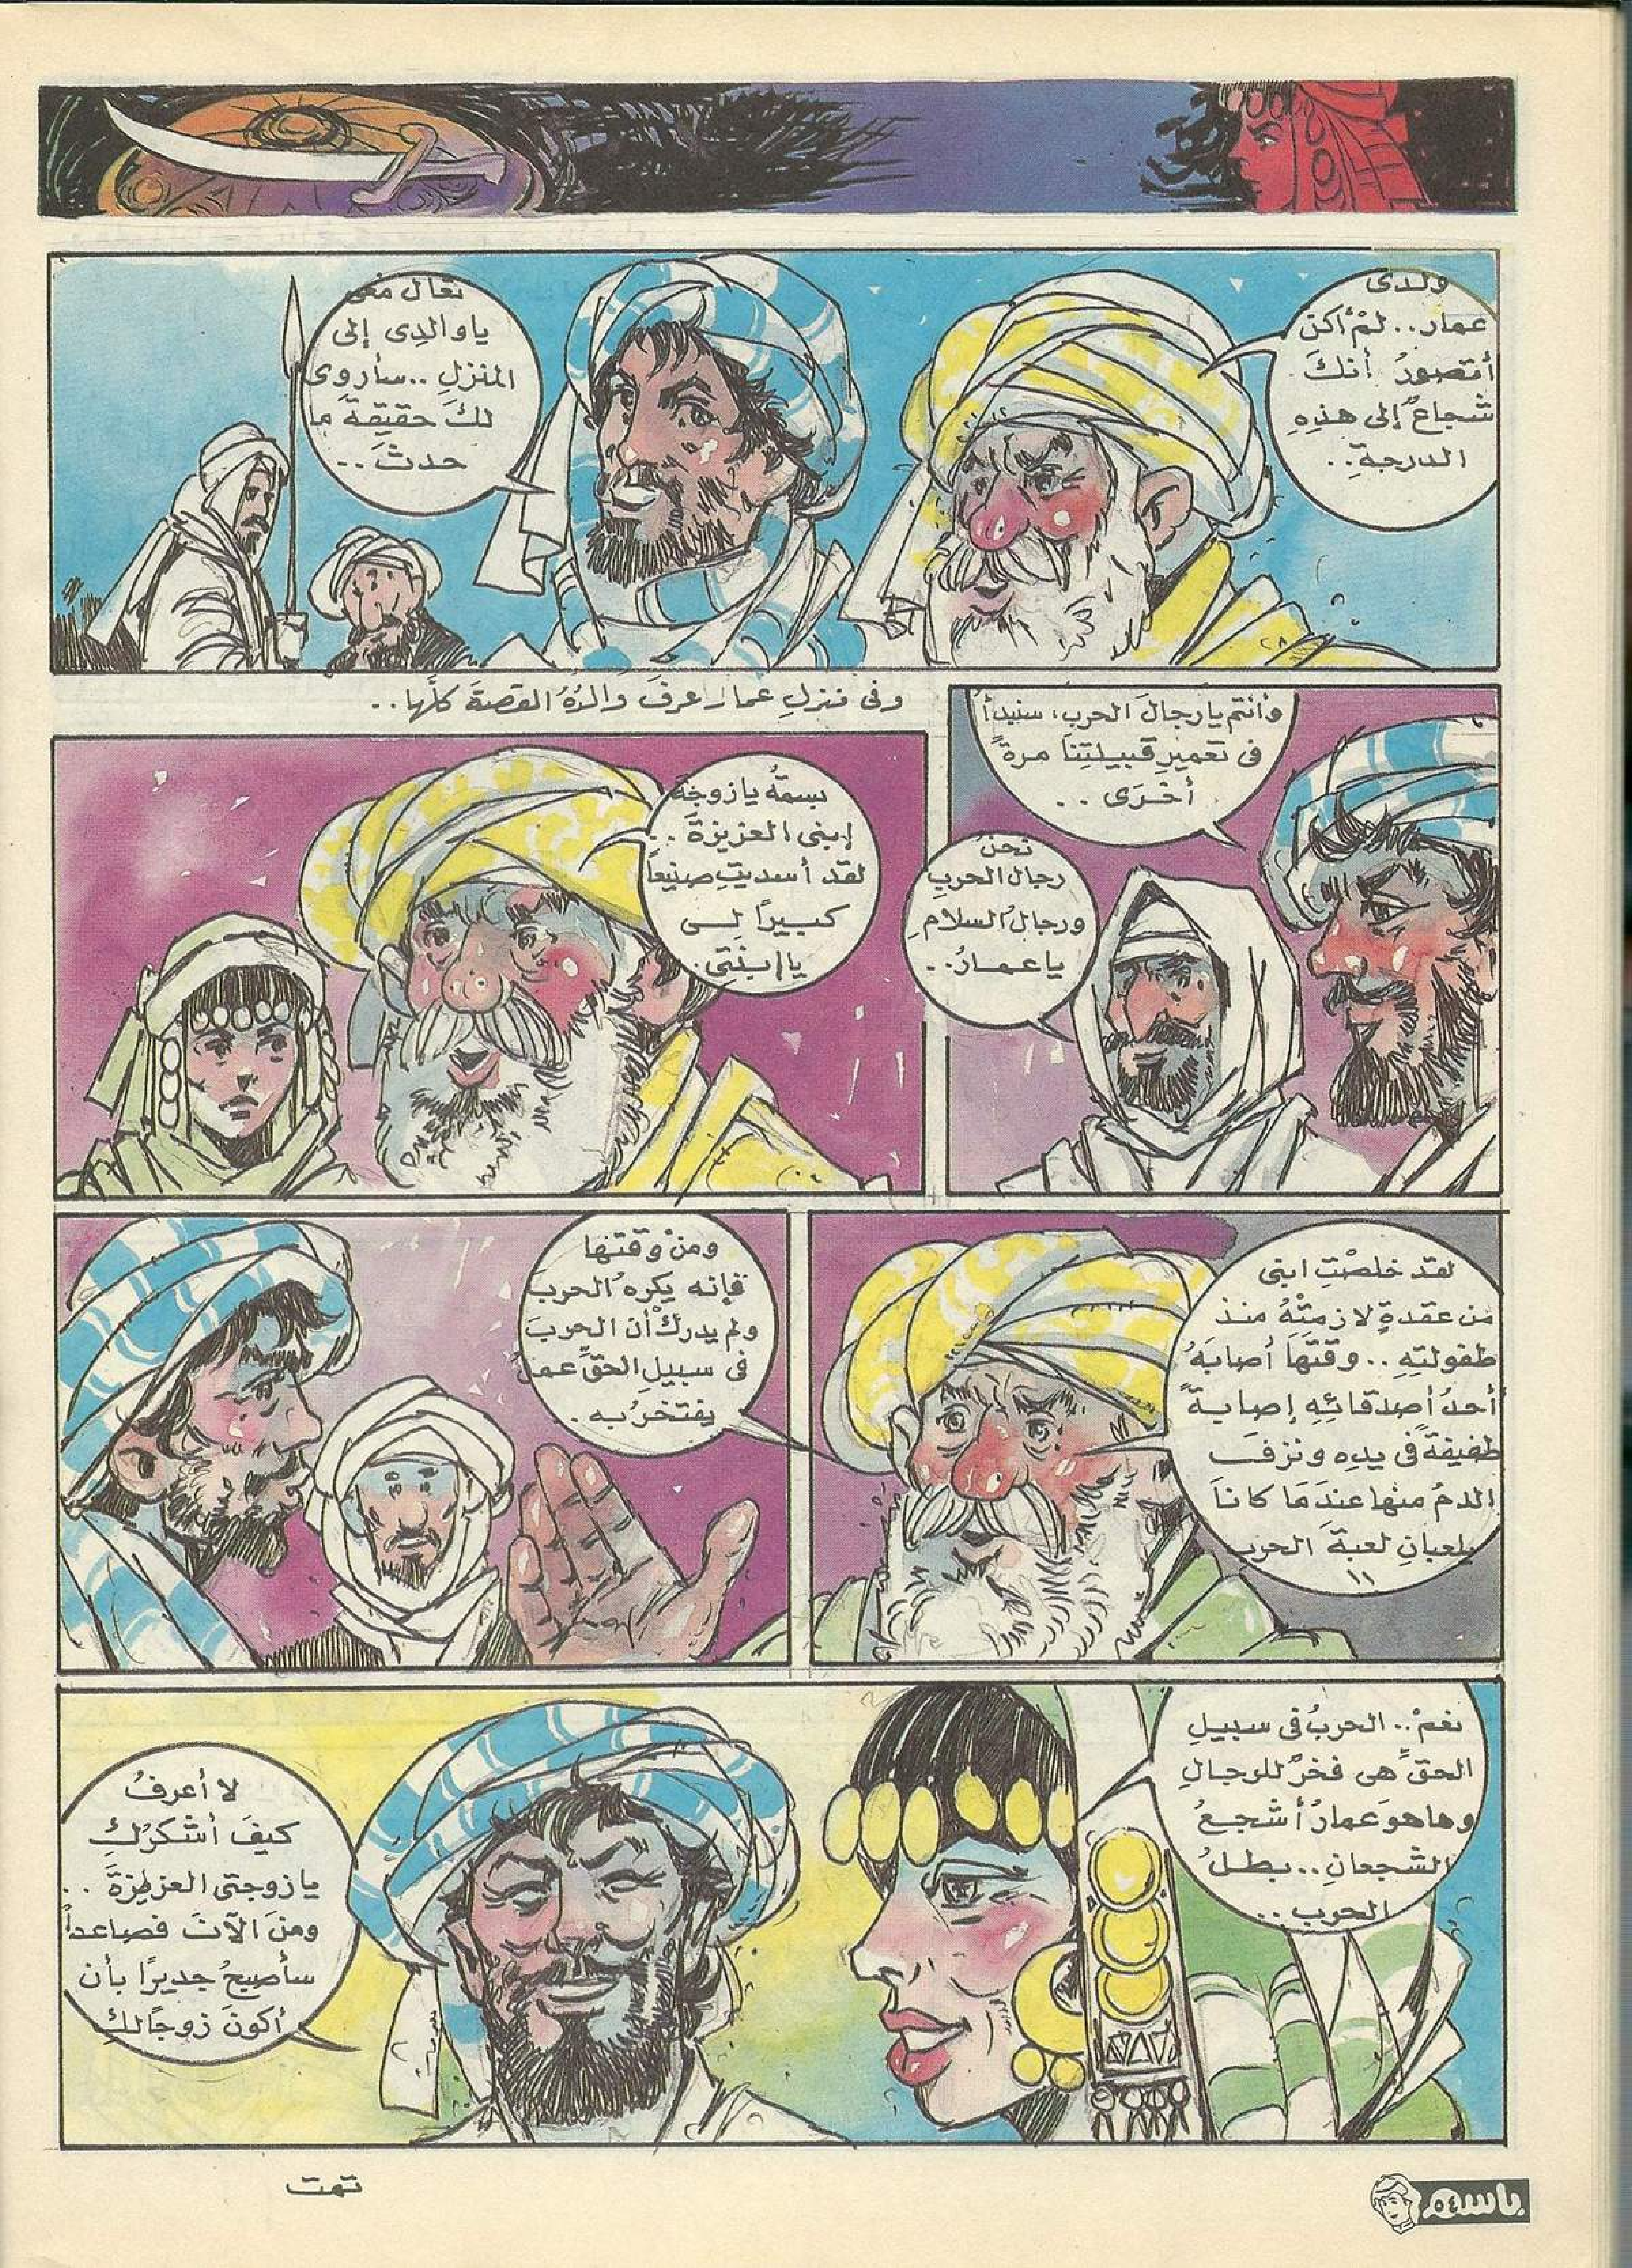 ولدى
عمار.. لمْ أكنْ
أتصورُ أنكَ
شجاعٌ إلى هذِهِ
الدرجةِ..
تعال معى
ياوالدِى إلى
المنزلِ ..سأروى
لكَ حقيقةَ ما
حدثَ..
وأنتم يارجالَ الحربِ، سنبدأُ
فى تعميرِ قبيلتِنا مرةً
أخرَى ..
نحنُ
رجالُ الحربِ
ورجالُ السلامِ
ياعمارُ..
وفى منزلِ عمار عرفَ والدُهُ القصةَ كلَّها..
بسمةُ يازوجةَ
إبنى العزيزةَ ..
لقد أسديتِ صنيعاً
كبيرًا لى
يا إبنتِى.
لقد خلصْتِ ابنى
من عقدةٍ لازمتْهُ منذ
طفولتِهِ.. وقتَها أصابَهُ
أحدُ أصدقائِهِ إصابةً
طفيفةً فى يدِه ونزفَ
الدمُ منها عندَمَا كانَا
يلعبانِ لعبةَ الحربِ
!!
ومنْ وقتها
فإنه يكرهُ الحربَ
ولم يدركْ أن الحربَ
فى سبيلِ الحقِّ عملٌ
يفتخرُ به.
نعمْ.. الحربُ فى سبيلِ
الحقِّ هى فخرٌ للرجالِ
وهاهوَ عمارُ أشجعُ
الشجعانِ.. بطلُ
الحربِ..
لا أعرفُ
كيفَ أشكرُكِ
يازوجتى العزيزةَ ..
ومنَ الآنَ فصاعداً
سأصبحُ جديرًا بأن
أكونَ زوجًا لكِ
تمت
باسم
٥٤